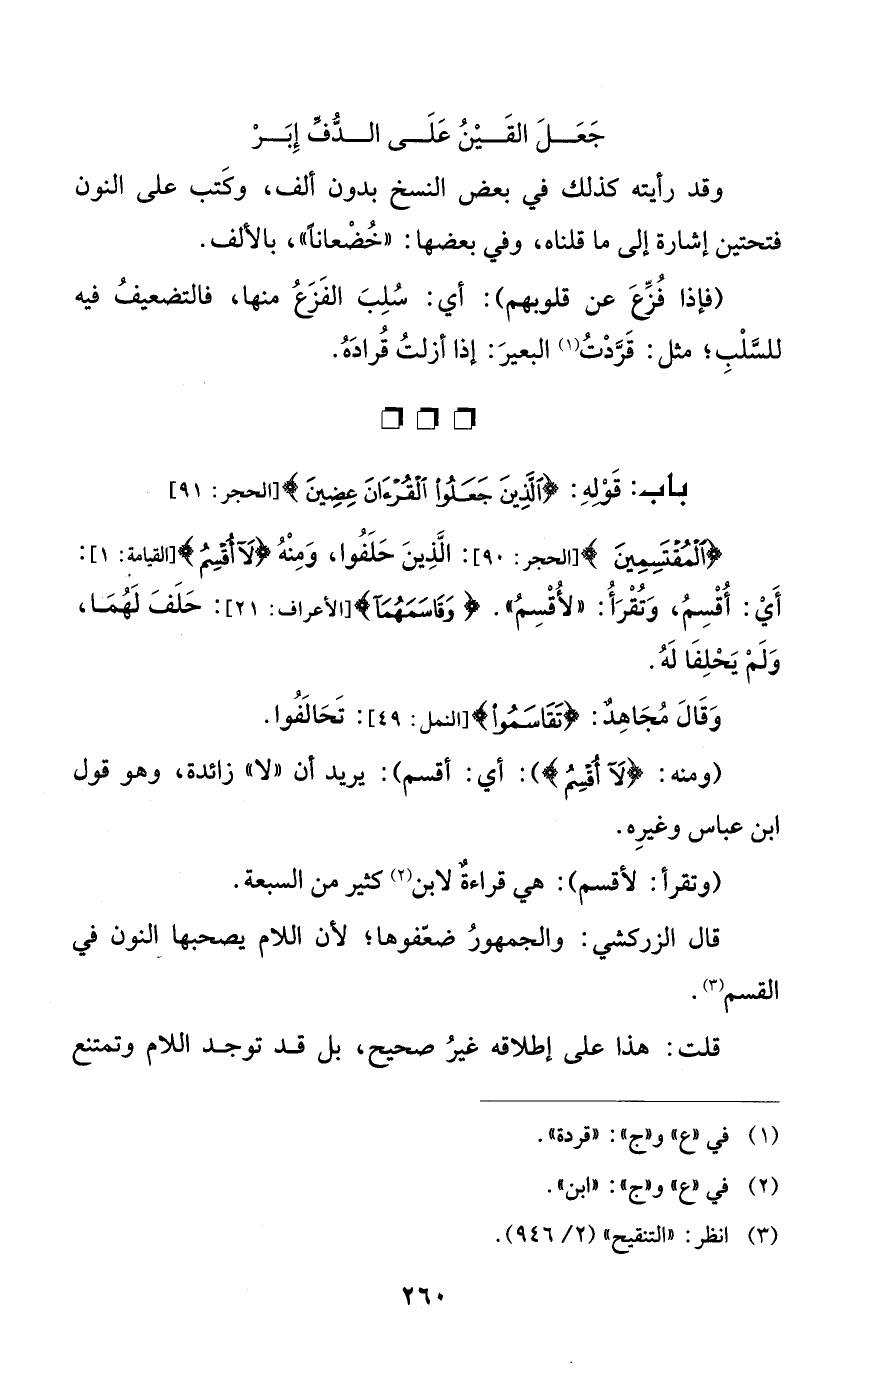 جَعَـــلَ القَـــيْنُ عَلَـــى الـــدُّفِّ إِبَـــرْ
وقد رأيته كذلك في بعض النسخ بدون ألف، وكَتب على النون
فتحتين إشارة إلى ما قلناه، وفي بعضها: «خُضْعاناً»، بالألف.
(فإذا فُزِّعَ عن قلوبهم): أي: سُلِبَ الفَزَعُ منها، فالتضعيفُ فيه
للسَّلْبِ؛ مثل: قَرَّدْتُ(١) البعيرَ: إذا أزلتُ قُرادَهُ.
باب: قَوْلِهِ: ﴿ٱلَّذِينَ جَعَلُوا۟ ٱلْقُرْءَانَ عِضِينَ﴾[الحجر: ٩١]
﴿ٱلْمُقْتَسِمِينَ﴾[الحجر: ٩٠]: الَّذِينَ حَلَفُوا، وَمِنْهُ ﴿لَآ أُقْسِمُ﴾[القيامة: ١]:
أَيْ: أُقْسِمُ، وَتُقْرَأُ: «لأُقْسِمُ». ﴿وَقَاسَمَهُمَآ﴾[الأعراف: ٢١]: حَلَفَ لَهُمَا،
وَلَمْ يَحْلِفَا لَهُ.
وَقَالَ مُجَاهِدٌ: ﴿تَقَاسَمُوا۟﴾[النمل: ٤٩]: تَحَالَفُوا.
(ومنه: ﴿لَآ أُقْسِمُ﴾): أي: أقسم): يريد أن «لا» زائدة، وهو قول
ابن عباس وغيرِه.
(وتقرأ: لأقسم): هي قراءةٌ لابن(٢) كثير من السبعة.
قال الزركشي: والجمهورُ ضعّفوها؛ لأن اللام يصحبها النون في
القسم(٣).
قلت: هذا على إطلاقه غيرُ صحيح، بل قـد توجـد اللام وتمتنع
(١) في «ع» و«ج»: «قردة».
(٢) في «ع» و«ج»: «ابن».
(٣) انظر: «التنقيح» (٢/ ٩٤٦).
٢٦٠